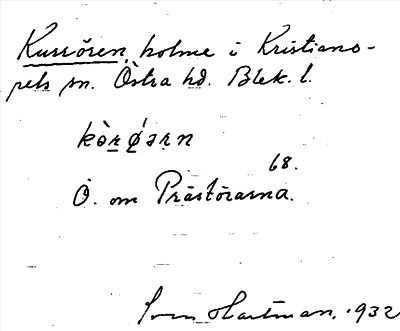 Kurrören, holme i Kristiano-
pels sn. Östra hd. Blek. l.
kòrǿərn
68.
Ö. om Prästörarna.
Sven Hartman. 1932